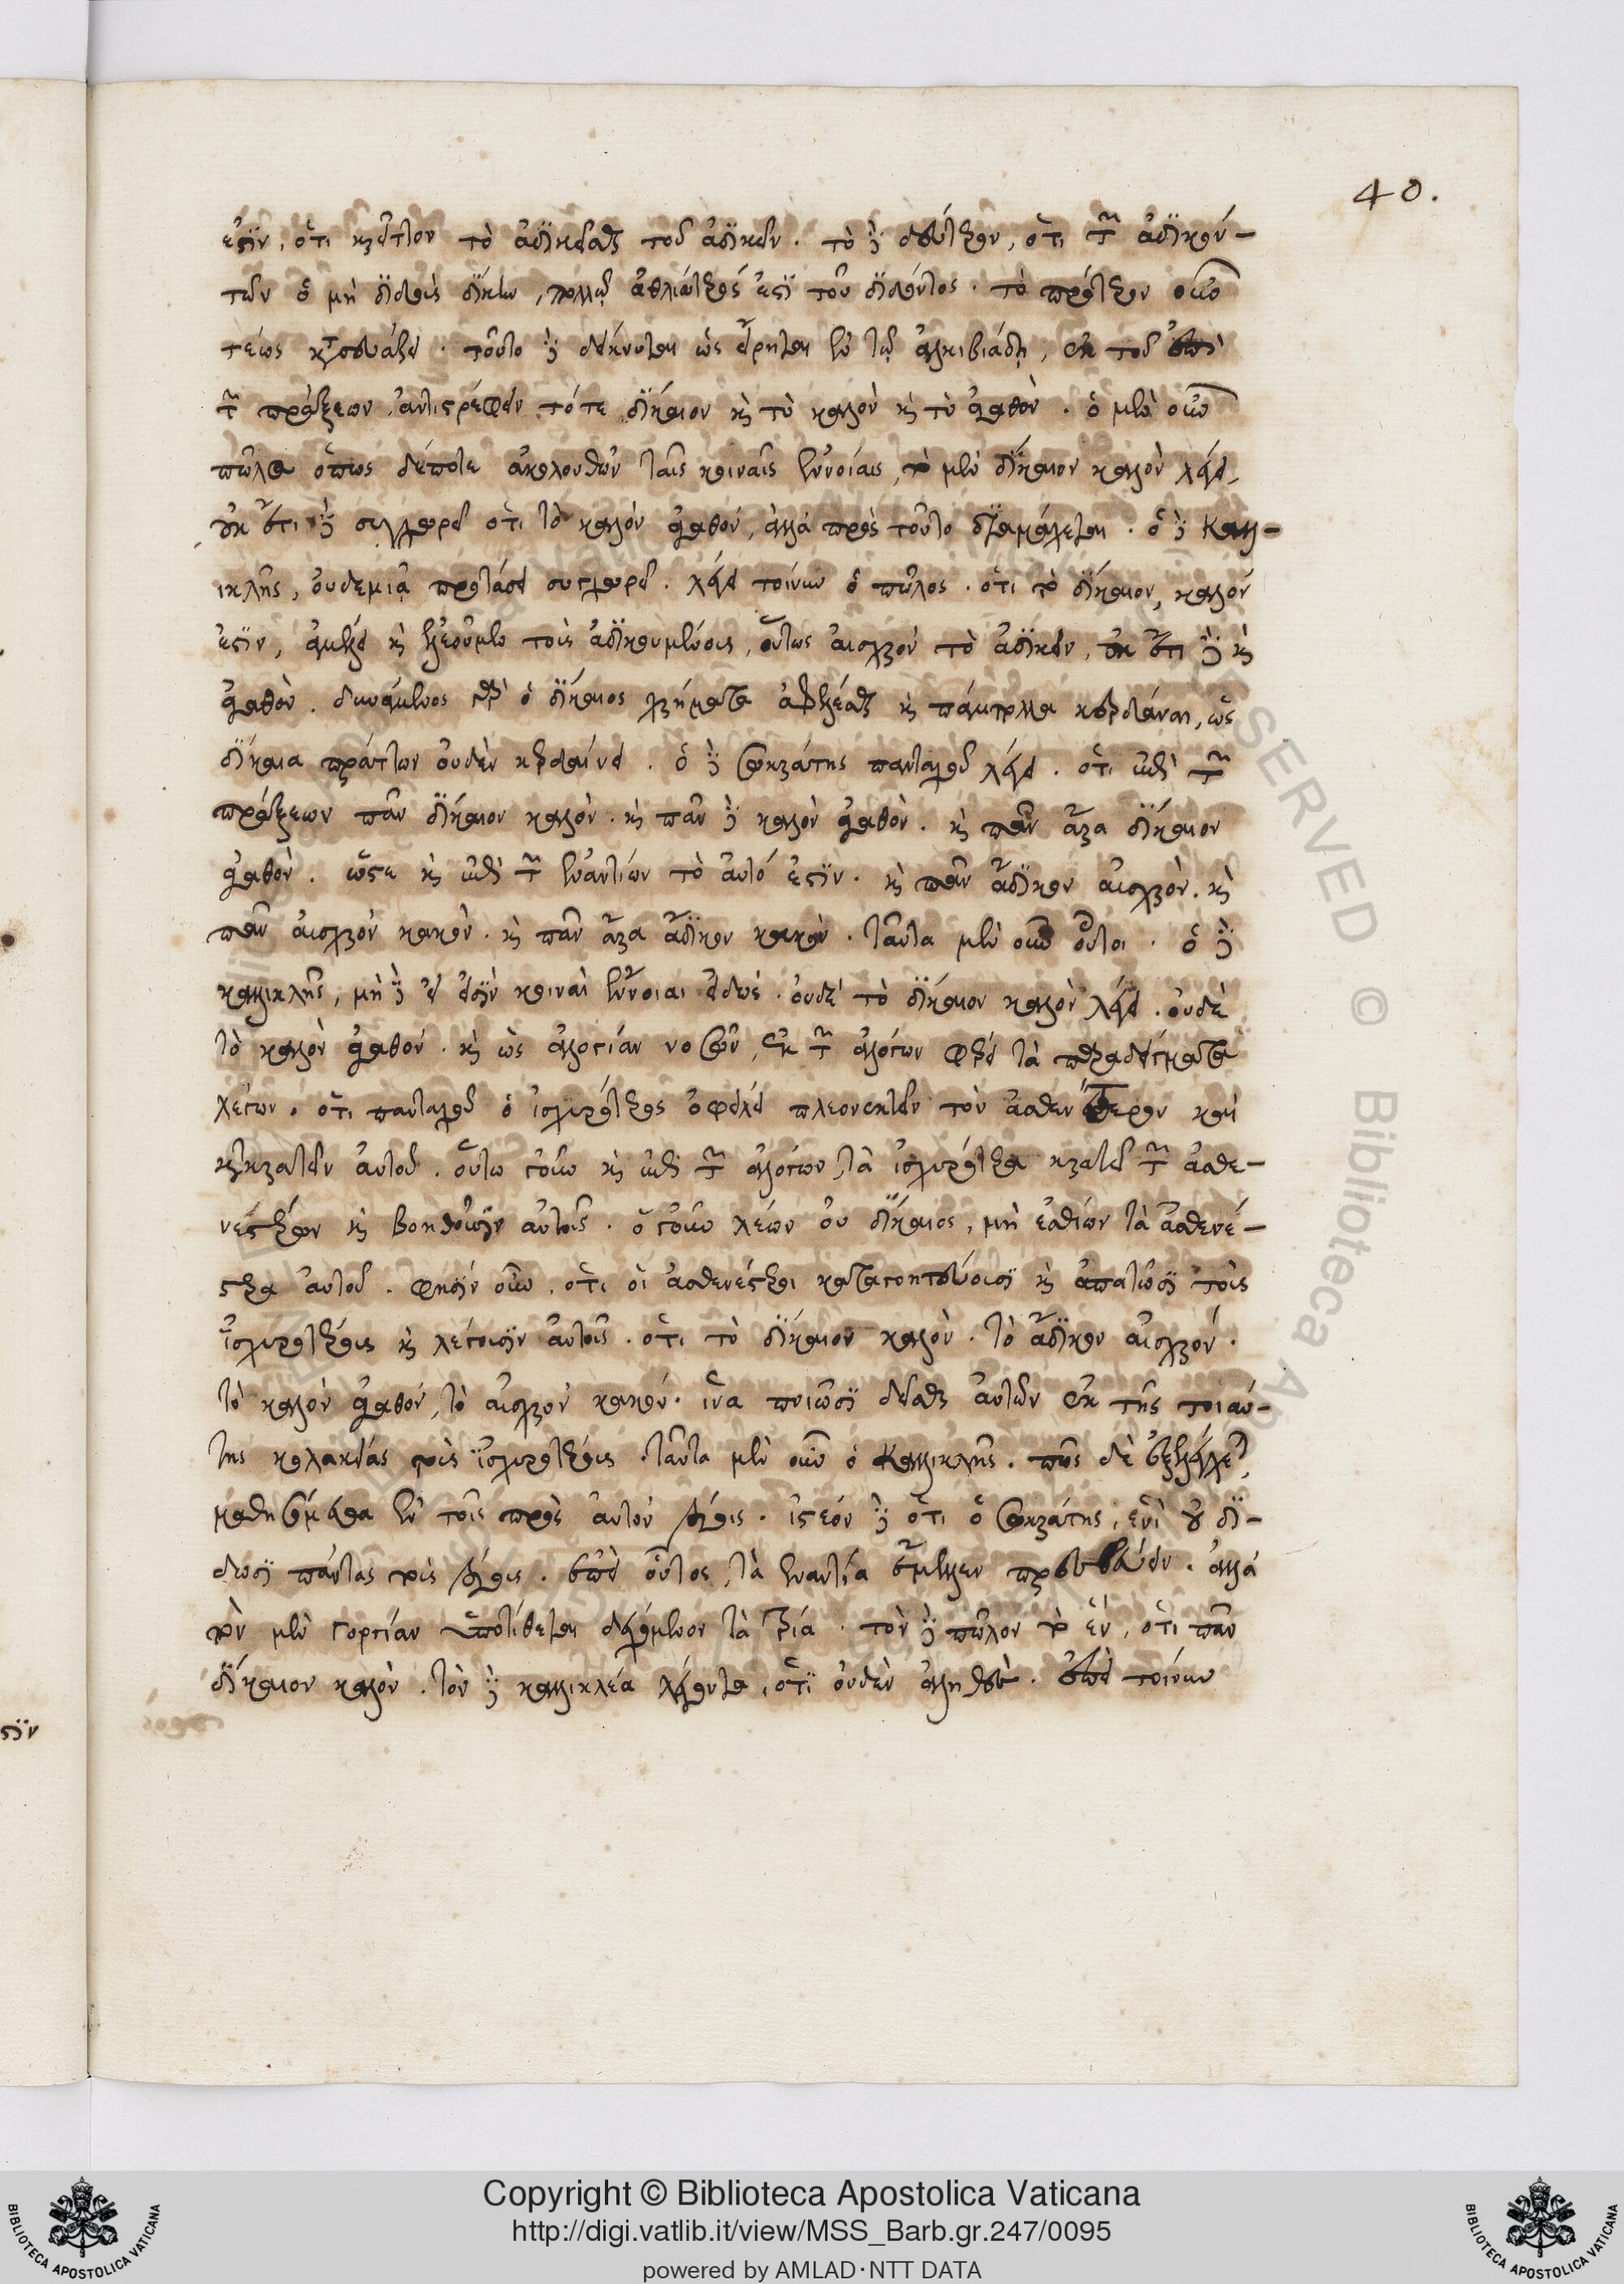 40.
ἐστὶν, ὅτι κρεῖττον τὸ ἀδικεῖσθαι τοῦ ἀδικεῖν. τὸ δὲ δεύτερον, ὅτι τῶν ἀδικούν-
των ὁ μὴ διδοὺς δίκην, πολλῷ ἀθλιώτερός ἐστι τοῦ διδόντος. τὸ πρότερον οὖν
τέως κατασκευάζει. τοῦτο δὲ δείκνυται ὡς εἴρηται ἐν τῷ ἀλκιβιάδῃ, ἐκ τοῦ ἐπὶ
τῶν πράξεων ἀντιστρέφειν τό τε δίκαιον καὶ τὸ καλὸν καὶ τὸ ἀγαθόν. ὁ μὲν οὖν
πῶλος ὅπως δέποτε ἀκολουθῶν ταῖς κοιναῖς ἐννοίαις, τὸ μὲν δίκαιον καλὸν λέγει,
οὐκ ἔτι δὲ συγχωρεῖ ὅτι τὸ καλὸν ἀγαθόν, ἀλλὰ πρὸς τοῦτο διαμάχεται. ὁ δὲ Καλλ-
ικλῆς, οὐδεμιᾷ προτάσει συγχωρεῖ. λέγει τοίνυν ὁ πῶλος. ὅτι τὸ δίκαιον, καλόν
ἐστιν, ἀμέλει καὶ ἐλεοῦμεν τοῖς ἀδικουμένοις, οὕτως αἰσχρὸν τὸ ἀδικεῖν, οὐκ ἔτι δὲ καὶ
ἀγαθὸν. δυνάμενος γὰρ ὁ δίκαιος χρήματα ἀφελέσθαι καὶ πάμπολλα κερδάναι, ὡς
δίκαια πράττων οὐδὲν κερδαίνει. ὁ δὲ Σωκράτης πανταχοῦ λέγει. ὅτι ἐπὶ τῶν
πράξεων πᾶν δίκαιον καλὸν. καὶ πᾶν δὲ καλὸν ἀγαθὸν. καὶ πᾶν ἄρα δίκαιον
ἀγαθὸν. ὥστε καὶ ἐπὶ τῶν ἐναντίων τὸ αὐτό ἐστιν. καὶ πᾶν ἄδικον αἰσχρὸν. καὶ
πᾶν αἰσχρὸν κακὸν. καὶ πᾶν ἄρα ἄδικον κακὸν. ταῦτα μὲν οὖν οὗτοι. ὁ δὲ
καλλικλῆς, μὴ δὲ εἰ εἰσὶν κοιναὶ ἔννοιαι εἰδώς. οὐδὲ τὸ δίκαιον καλὸν λέγει. οὐδὲ
τὸ καλὸν ἀγαθόν. καὶ ὡς ἀλογίαν νοσῶν, ἐκ τῶν ἀλόγων φέρει τὰ παραδείγματα
λέγων. ὅτι πανταχοῦ ὁ ἰσχυρότερος ὀφείλει πλεονεκτεῖν τὸν ἀσθενέστερον καὶ
κατακρατεῖν αὐτοῦ. οὕτω γοῦν καὶ ἐπὶ τῶν ἀλόγων, τὰ ἰσχυρότερα κρατεῖ τῶν ἀσθε-
νεστέρων καὶ βοηθοῦσιν αὐτοῖς. ὁ γοῦν λέων οὐ δίκαιος, μὴ ἐσθίων τὰ ἀσθενέ-
στερα αὐτοῦ. φησὶν οὖν. ὅτι οἱ ἀσθενέστεροι καταγοητεύουσι καὶ ἀπατῶσι τοὺς
ἰσχυροτέρους καὶ λέγουσιν αὐτοῖς. ὅτι τὸ δίκαιον καλὸν. τὸ ἄδικον αἰσχρόν.
τὸ καλὸν ἀγαθόν, τὸ αἰσχρὸν κακόν. ἵνα ποιῶσι δεῖσθαι αὐτῶν ἐκ τῆς τοιαύ-
της κολακείας τοὺς ἰσχυροτέρους. ταῦτα μὲν οὖν ὁ Καλλικλῆς. πῶς δὲ ἐξελέγχεται,
μαθησόμεθα ἐν τοῖς πρὸς αὐτὸν λόγοις. ἰστέον δὲ ὅτι ὁ Σωκράτης, ἑνὶ οὐ δί-
δωσι πάντας τοὺς λόγους. ἐπεὶ οὗτος, τὰ ἐναντία ἔμελλεν πρεσβεύειν. ἀλλὰ
τὸν μὲν γοργίαν ὑποτίθεται δεχόμενον τὰ τρία. τὸν δὲ πῶλον τὸ ἕν, ὅτι πᾶν
δίκαιον καλὸν. τὸν δὲ καλλικλέα λέγοντα, ὅτι οὐδὲν ἀληθὲς. ἐπεὶ τοίνυν
σιν
Copyright © Biblioteca Apostolica Vaticana
http://digi.vatlib.it/view/MSS_Barb.gr.247/0095
powered by AMLAD·NTT DATA
BIBLIOTECA APOSTOLICA VATICANA
BIBLIOTECA APOSTOLICA VATICANA